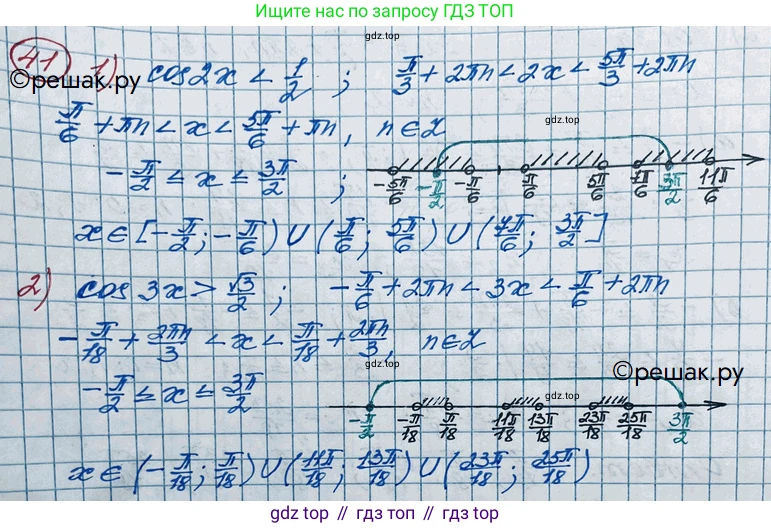 Ищите нас по запросу ГДЗ ТОП
gdz top
41 1) cos2x < 1/2 ; π/3 + 2πn < 2x < 5π/3 + 2πn
©решак.ру
gdz top
π/6 + πn < x < 5π/6 + πn, n ∈ Z
-π/2 ≤ x ≤ 3π/2 ;
-5π/6 -π/2 -π/6 π/6 5π/6 7π/6 3π/2 11π/6
x ∈ [-π/2; -π/6) ∪ (π/6; 5π/6) ∪ (7π/6; 3π/2]
gdz top
2) cos 3x > √3/2 ; -π/6 + 2πn < 3x < π/6 + 2πn
-π/18 + 2πn/3 < x < π/18 + 2πn/3, n ∈ Z
©решак.ру
-π/2 ≤ x ≤ 3π/2
gdz top
-π/2 -π/18 π/18 11π/18 13π/18 23π/18 25π/18 3π/2
x ∈ (-π/18; π/18) ∪ (11π/18; 13π/18) ∪ (23π/18; 25π/18)
gdz top // гдз топ // gdz.top // гдз.топ